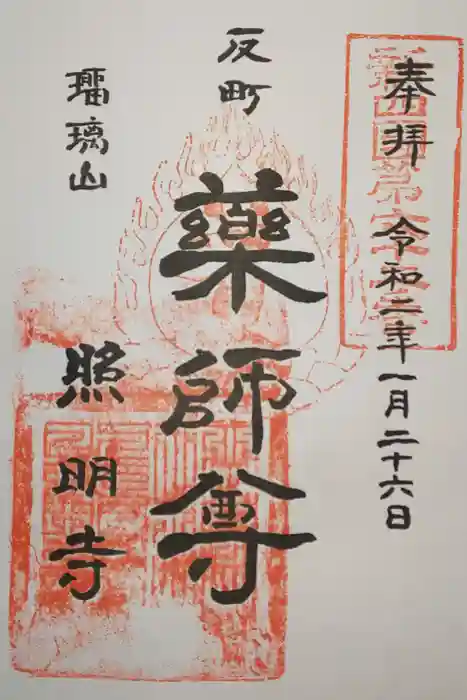 奉拝 令和二年一月二十六日
反町
薬師尊
瑠璃山
照明寺